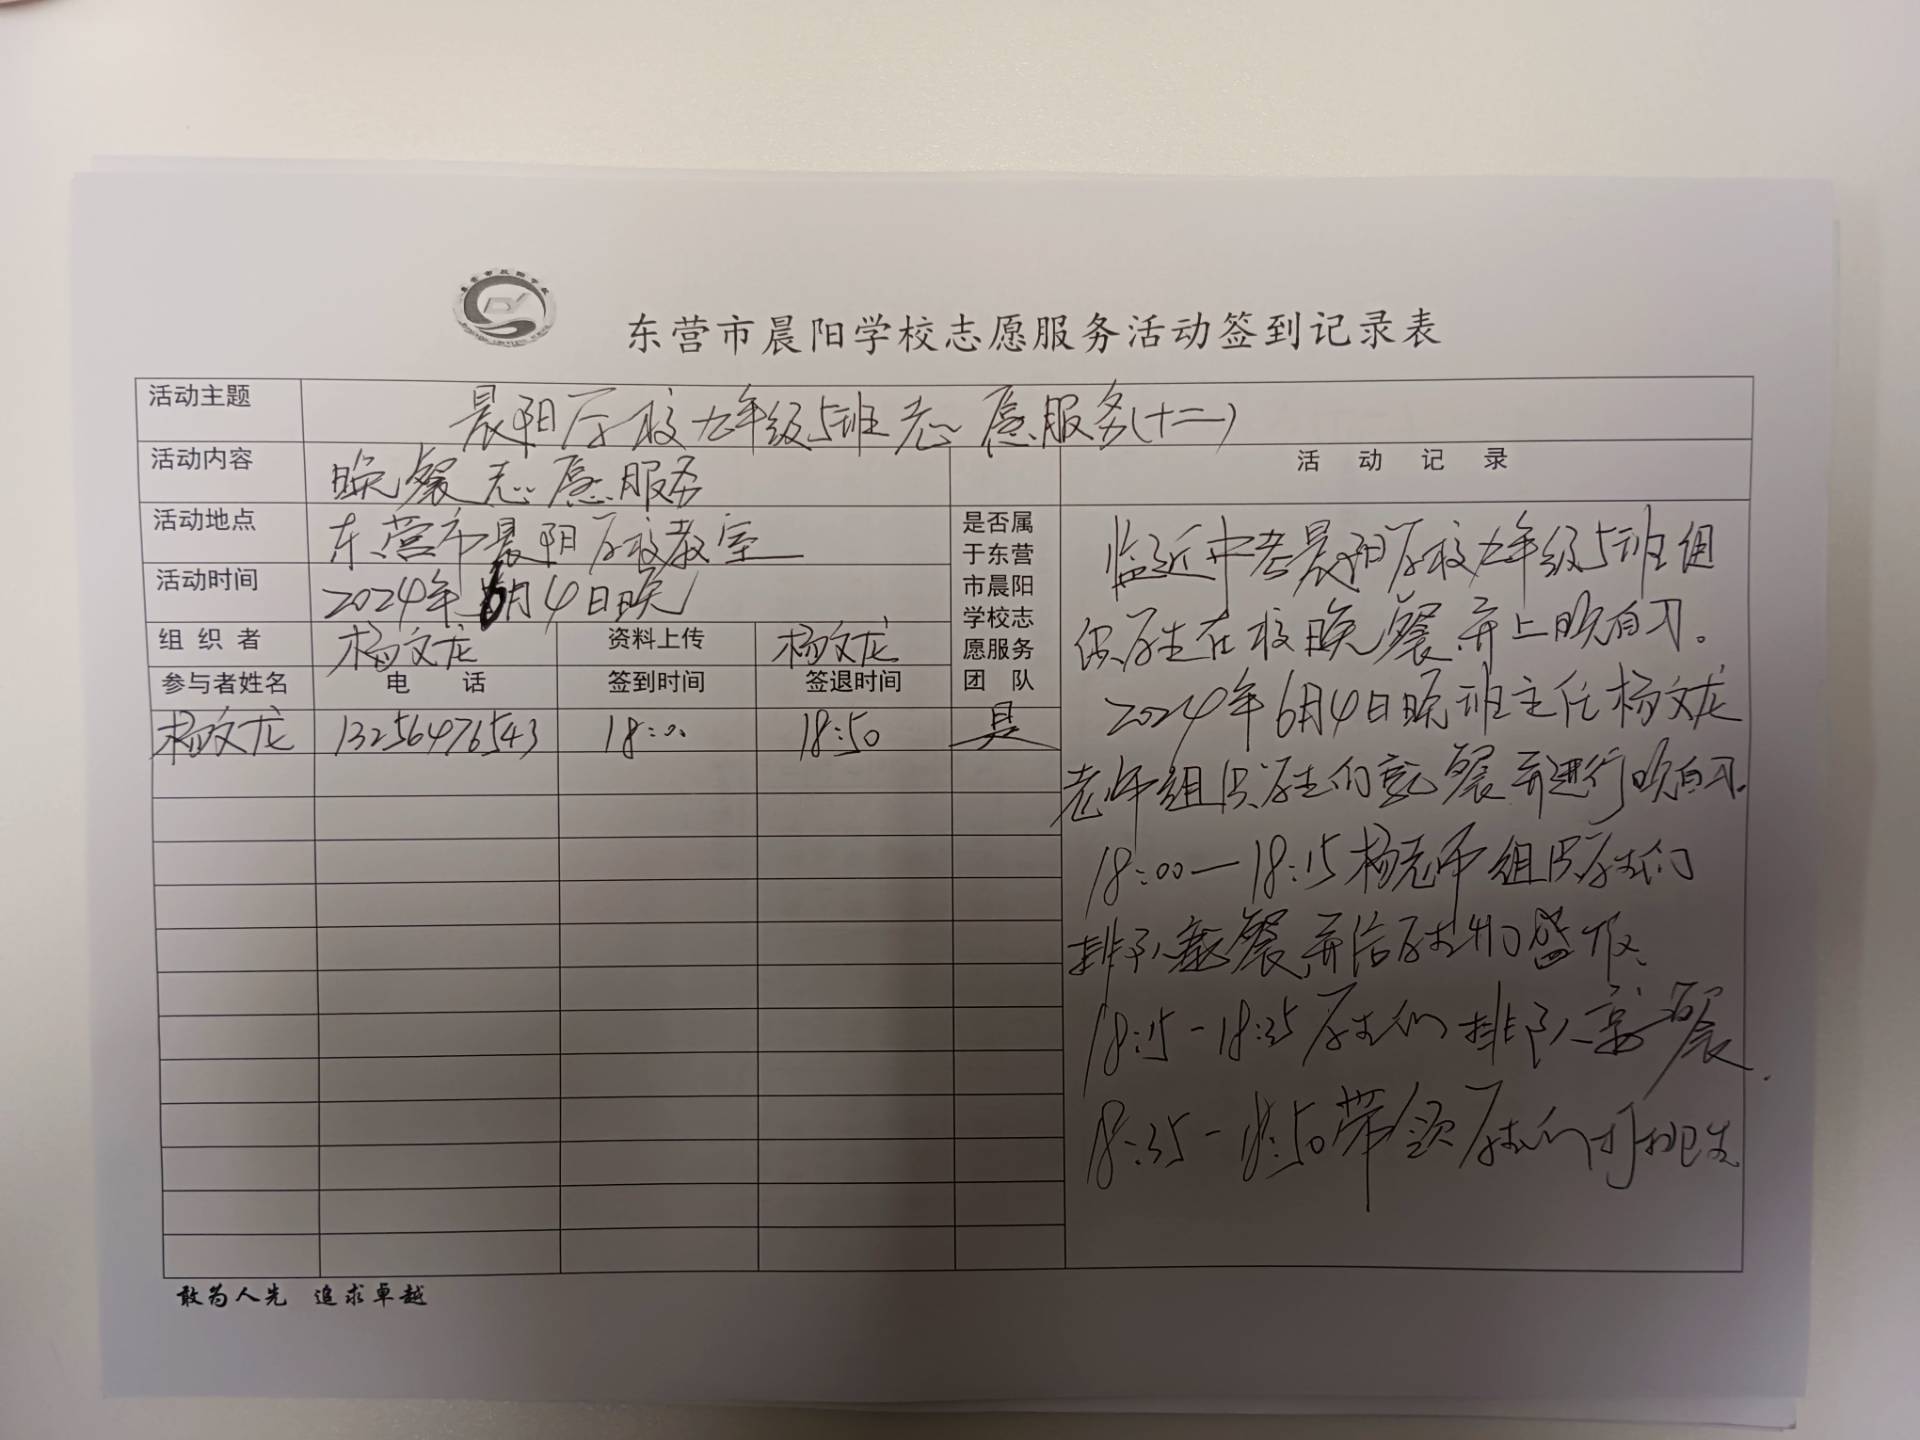 东营市晨阳学校志愿服务活动签到记录表
活动主题 晨阳学校九年级5班志愿服务(十二)
活动内容 晚餐志愿服务
活动地点 东营市晨阳学校教室
活动时间 2024年6月4日晚
组织者 杨文龙 资料上传 杨文龙
参与者姓名 电话 签到时间 签退时间
是否属
于东营
市晨阳
学校志
愿服务
团队
杨文龙 13256476543 18:00 18:50 是
活动记录
临近中考晨阳学校九年级5班组
织学生在校晚餐并上晚自习。
2024年6月4日晚班主任杨文龙
老师组织学生们就餐并进行晚自习.
18:00—18:15杨老师组织学生们
排队就餐并给学生们盛饭、
18:15-18:35学生们排队就餐.
18:35-18:50带领学生们打扫卫生
敢为人先 追求卓越